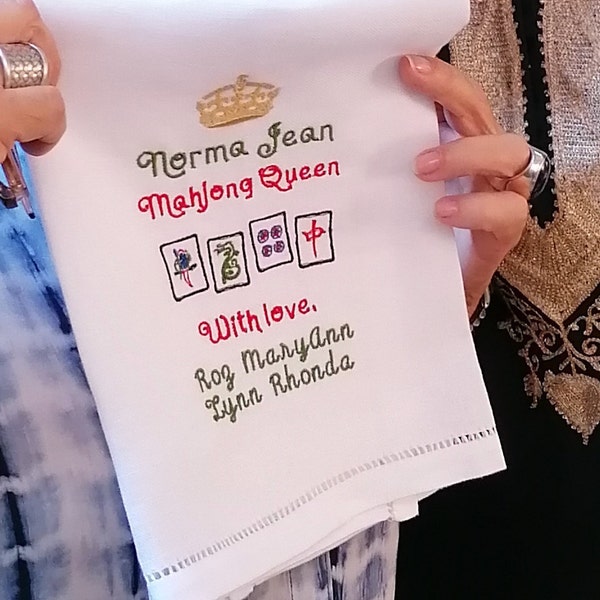 Norma Jean
Mahjong Queen
中
With love,
Roz MaryAnn
Lynn Rhonda